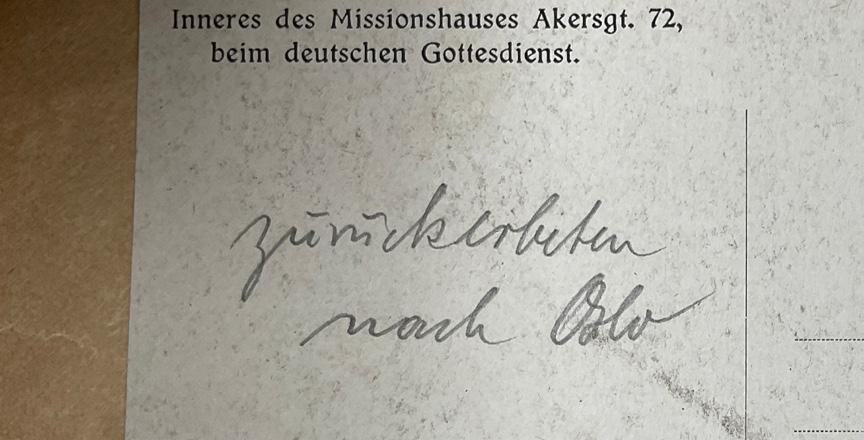 Inneres des Missionshauses Akersgt. 72,
beim deutschen Gottesdienst.
zurückerbeten
nach Oslo